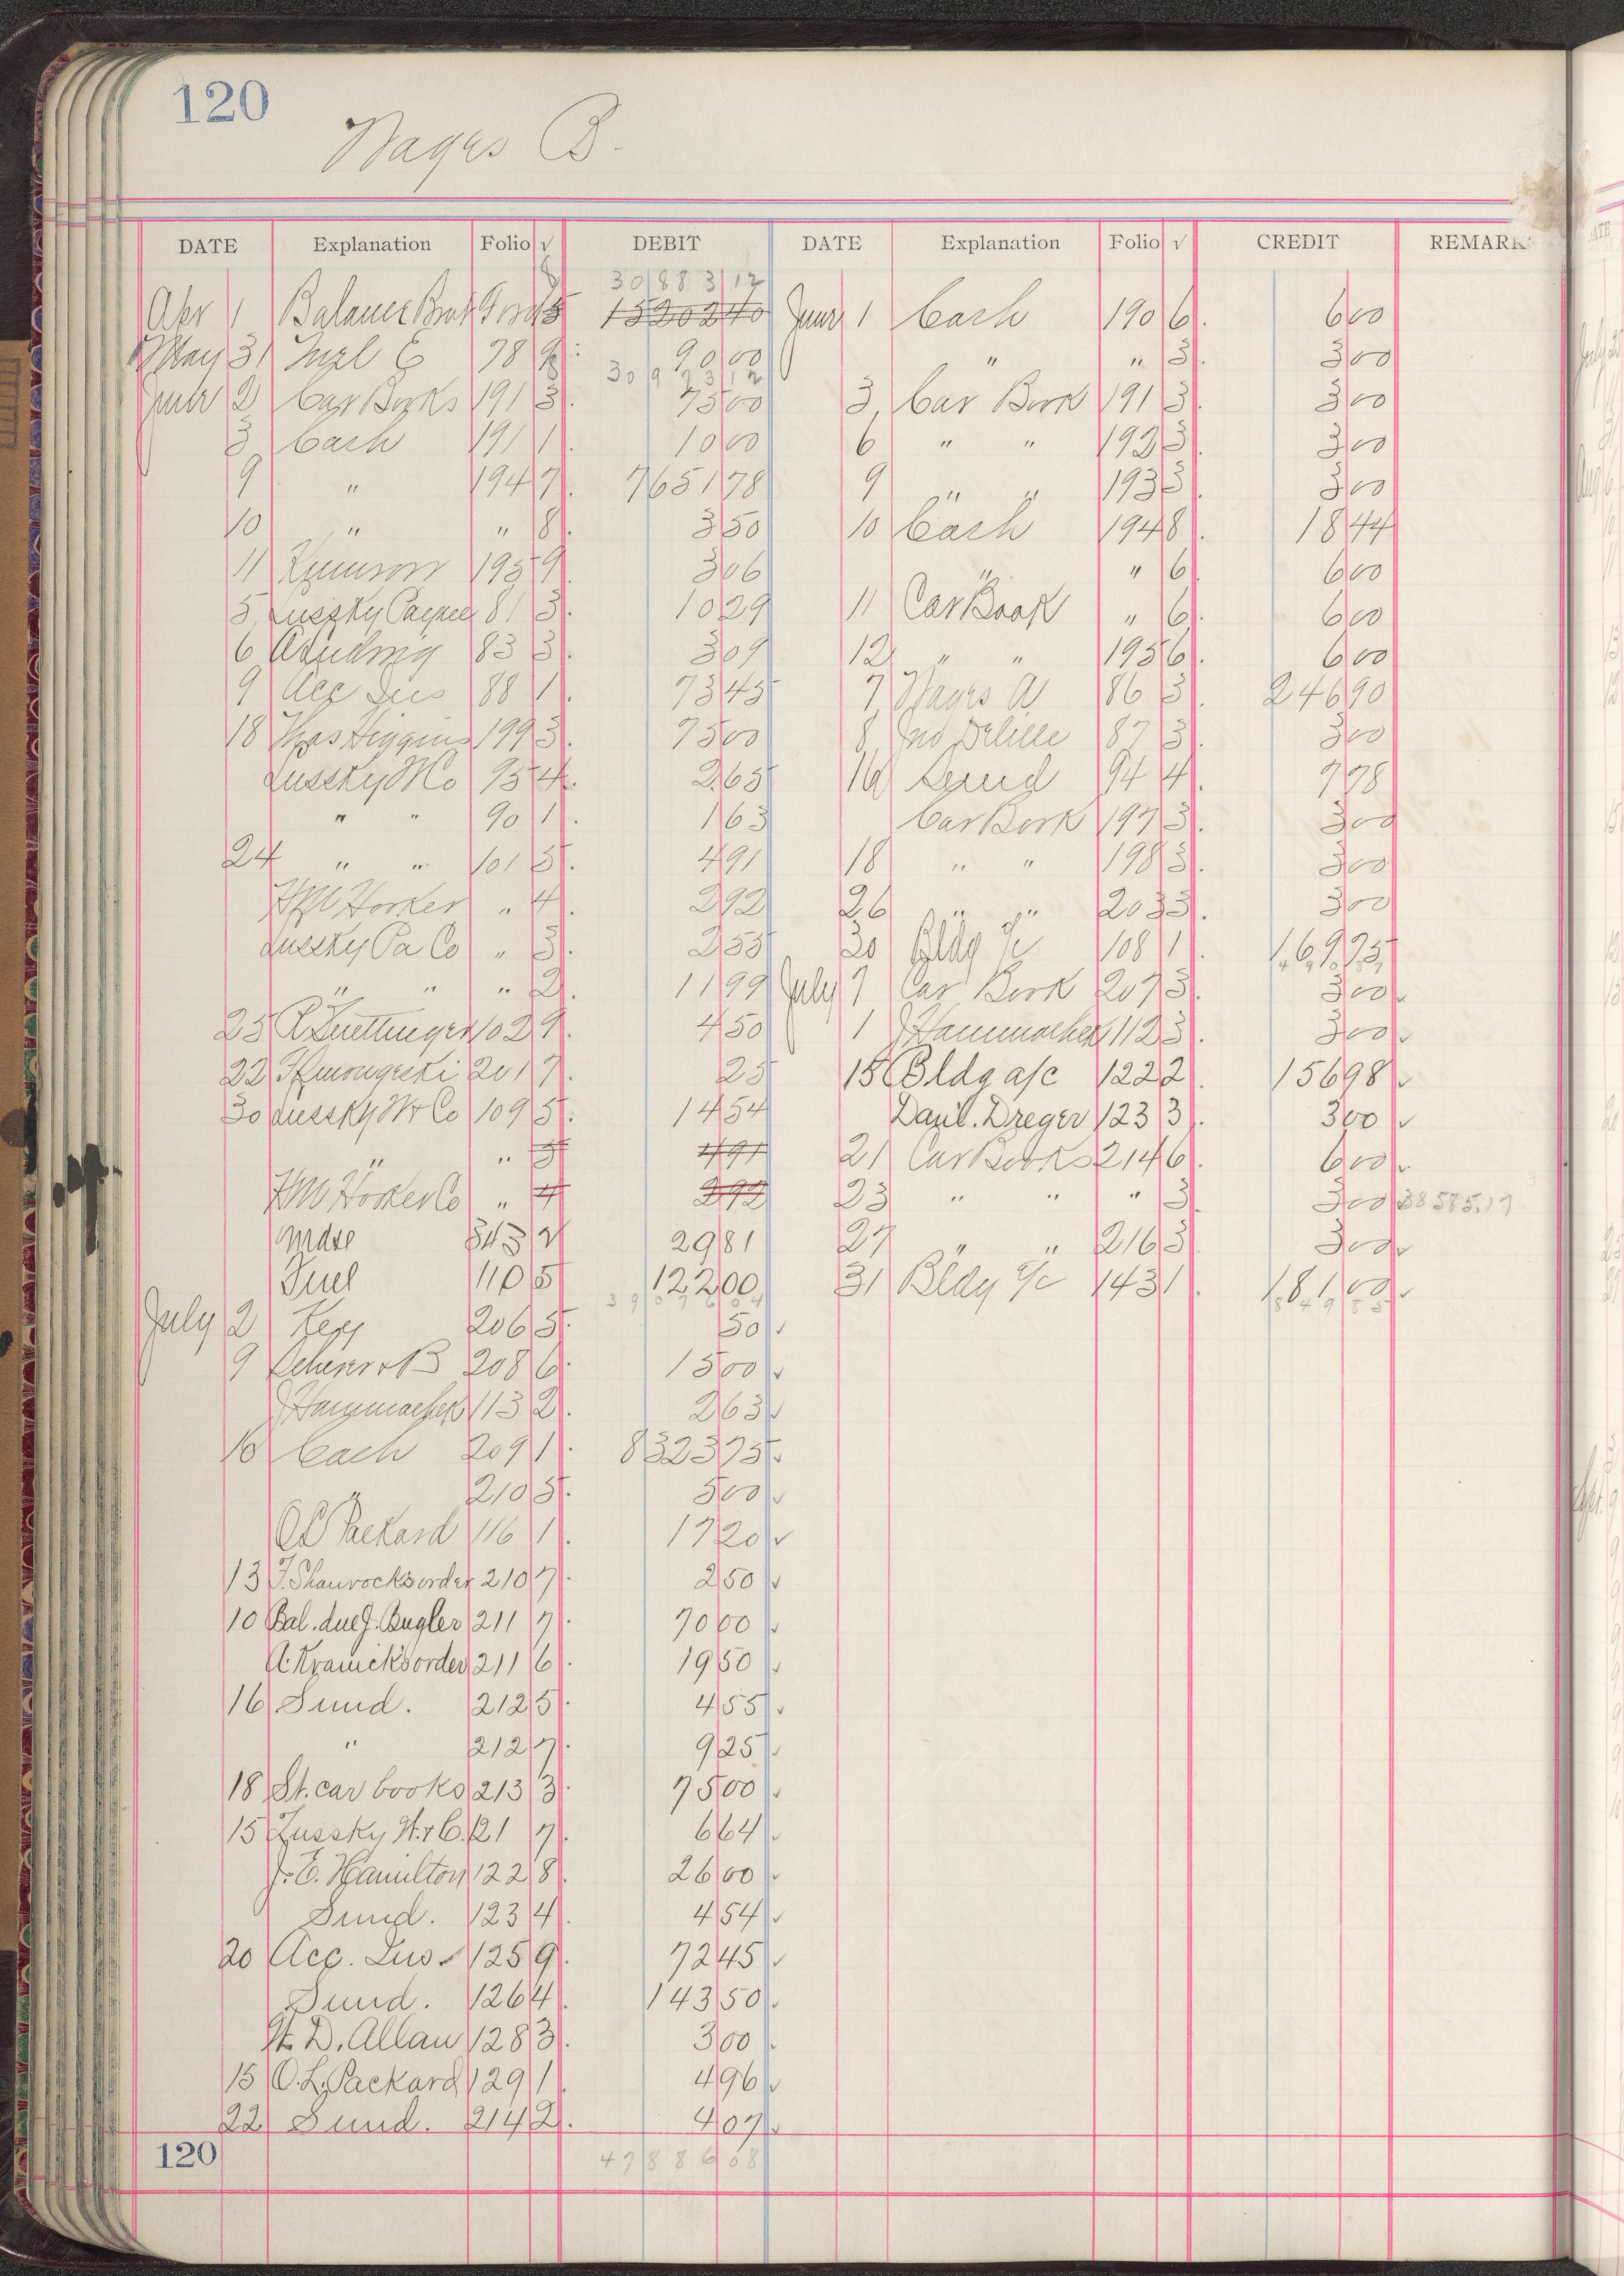 120
Wages B.
DATE Explanation Folio √ DEBIT DATE Explanation Folio √ CREDIT REMARK
30 883 12
Apr 1 Balance 1520240 June 1 Cash 190 6 6 00
May 31 8 90 00 " " 3 3 00
30 973 12
June 2 Car Books 191 3 75 00 3 Car Book 191 3 3 00
3 Cash 191 1 10 00 6 " " 192 3 3 00
9 " 194 7 7651 78 9 " " 193 3 3 00
10 " " 8 3 50 10 Cash 194 8 18 44
11 195 9 3 06 " " 6 6 00
5 Lussky 81 3 10 29 11 Car Book " 6 6 00
6 83 3 3 09 12 " " 195 6 6 00
9 Acc Ins 88 1 73 45 7 Wages A 86 3 246 90
18 Thos Higgins 199 3 75 00 8 Jno Delille 87 3 3 00
Lussky W Co 95 4 2 65 16 Sund 94 4 7 78
" " 90 1 1 63 Car Book 197 3 3 00
24 " " 101 5 4 91 18 " " 198 3 3 00
HM Hooker " 4 2 92 26 " " 203 3 3 00
Lussky Pa Co " 3 2 55 30 Bldg a/c 108 1 1,699.75
" " " 2 11 99 July 7 Car Book 207 3 3 00
25 1029 4 50 1 J Hammacher 112 3 3 00
22 201 7 25 15 Bldg a/c 122 2 156 98
30 Lussky W Co 109 5 14 54 Danl. Dreger 123 3 3 00
" " 5 4 91 21 Car Books 214 6 6 00
HM Hooker Co " 4 2 92 23 " " " 3 3 00 38585.17
Mdse 543 2 29 81 27 " " 216 3 3 00
Fuel 110 5 122 00 31 Bldg a/c 143 1
July 2 206 5 50
9 208 6 15 00
J Hammacher 113 2 2 63
10 Cash 209 1 8323 75
" 210 5 5 00
OL Packard 116 1 17 20
13 J. Shamrocks order 210 7 2 50
10 Bal. due J. Bugler 211 7 70 00
A. Kranicks order 211 6 19 50
16 Sund. 212 5 4 55
" 212 7 9 25
18 St. car books 213 3 75 00
15 Lussky W. & C. 121 7 6 64
J. E. Hamilton 122 8 26 00
Sund. 123 4 4 54
20 Acc. Ins. 125 9 72 45
Sund. 126 4 143 50
W. D. Allan 128 3 3 00
15 O. L. Packard 129 1 4 96
22 Sund. 214 2 4 07
120 47 886 08